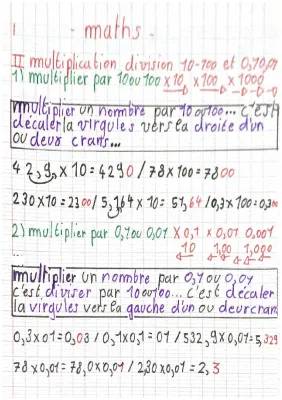 1 - maths -
II multiplication division 10-100 et 0,10,01
1) multiplier par 10 ou 100 x 10 x100 x 1000
multiplier un nombre par 10 ou 100... c'est
décaler la virgules vers la droite d'un
ou deux crans...
42,9, x 10 = 4290 / 78 x 100 = 7800
230 x 10 = 2300 / 5,164 x 10 = 51,64 / 0,3 x 100 = 0,300
2) multiplier par 0,1 ou 0,01 x 0,1 x 0,01 0.001
10 1,00 1,000
multiplier un nombre par 0,1 ou 0,01
c'est diviser par 10 ou 100... c'est décaler
la virgules vers la gauche d'un ou deux crans
0,3 x 0,1 = 0,03 / 0,1 x 0,1 = 01 / 532,9 x 0,01 = 5,329
78 x 0,01 = 78,0 x 0,01 / 230 x 0,01 = 2,3